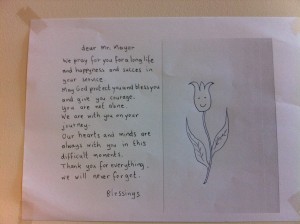 dear Mr. Mayor
We pray for you for a long life
and happyness and succes in
your service.
May God protect you and bless you
and give you courage.
you are not alone.
We are with you on your
journey.
Our hearts and minds are
always with you in this
difficult moments.
Thank you for everything,
we will never forget.
Blessings